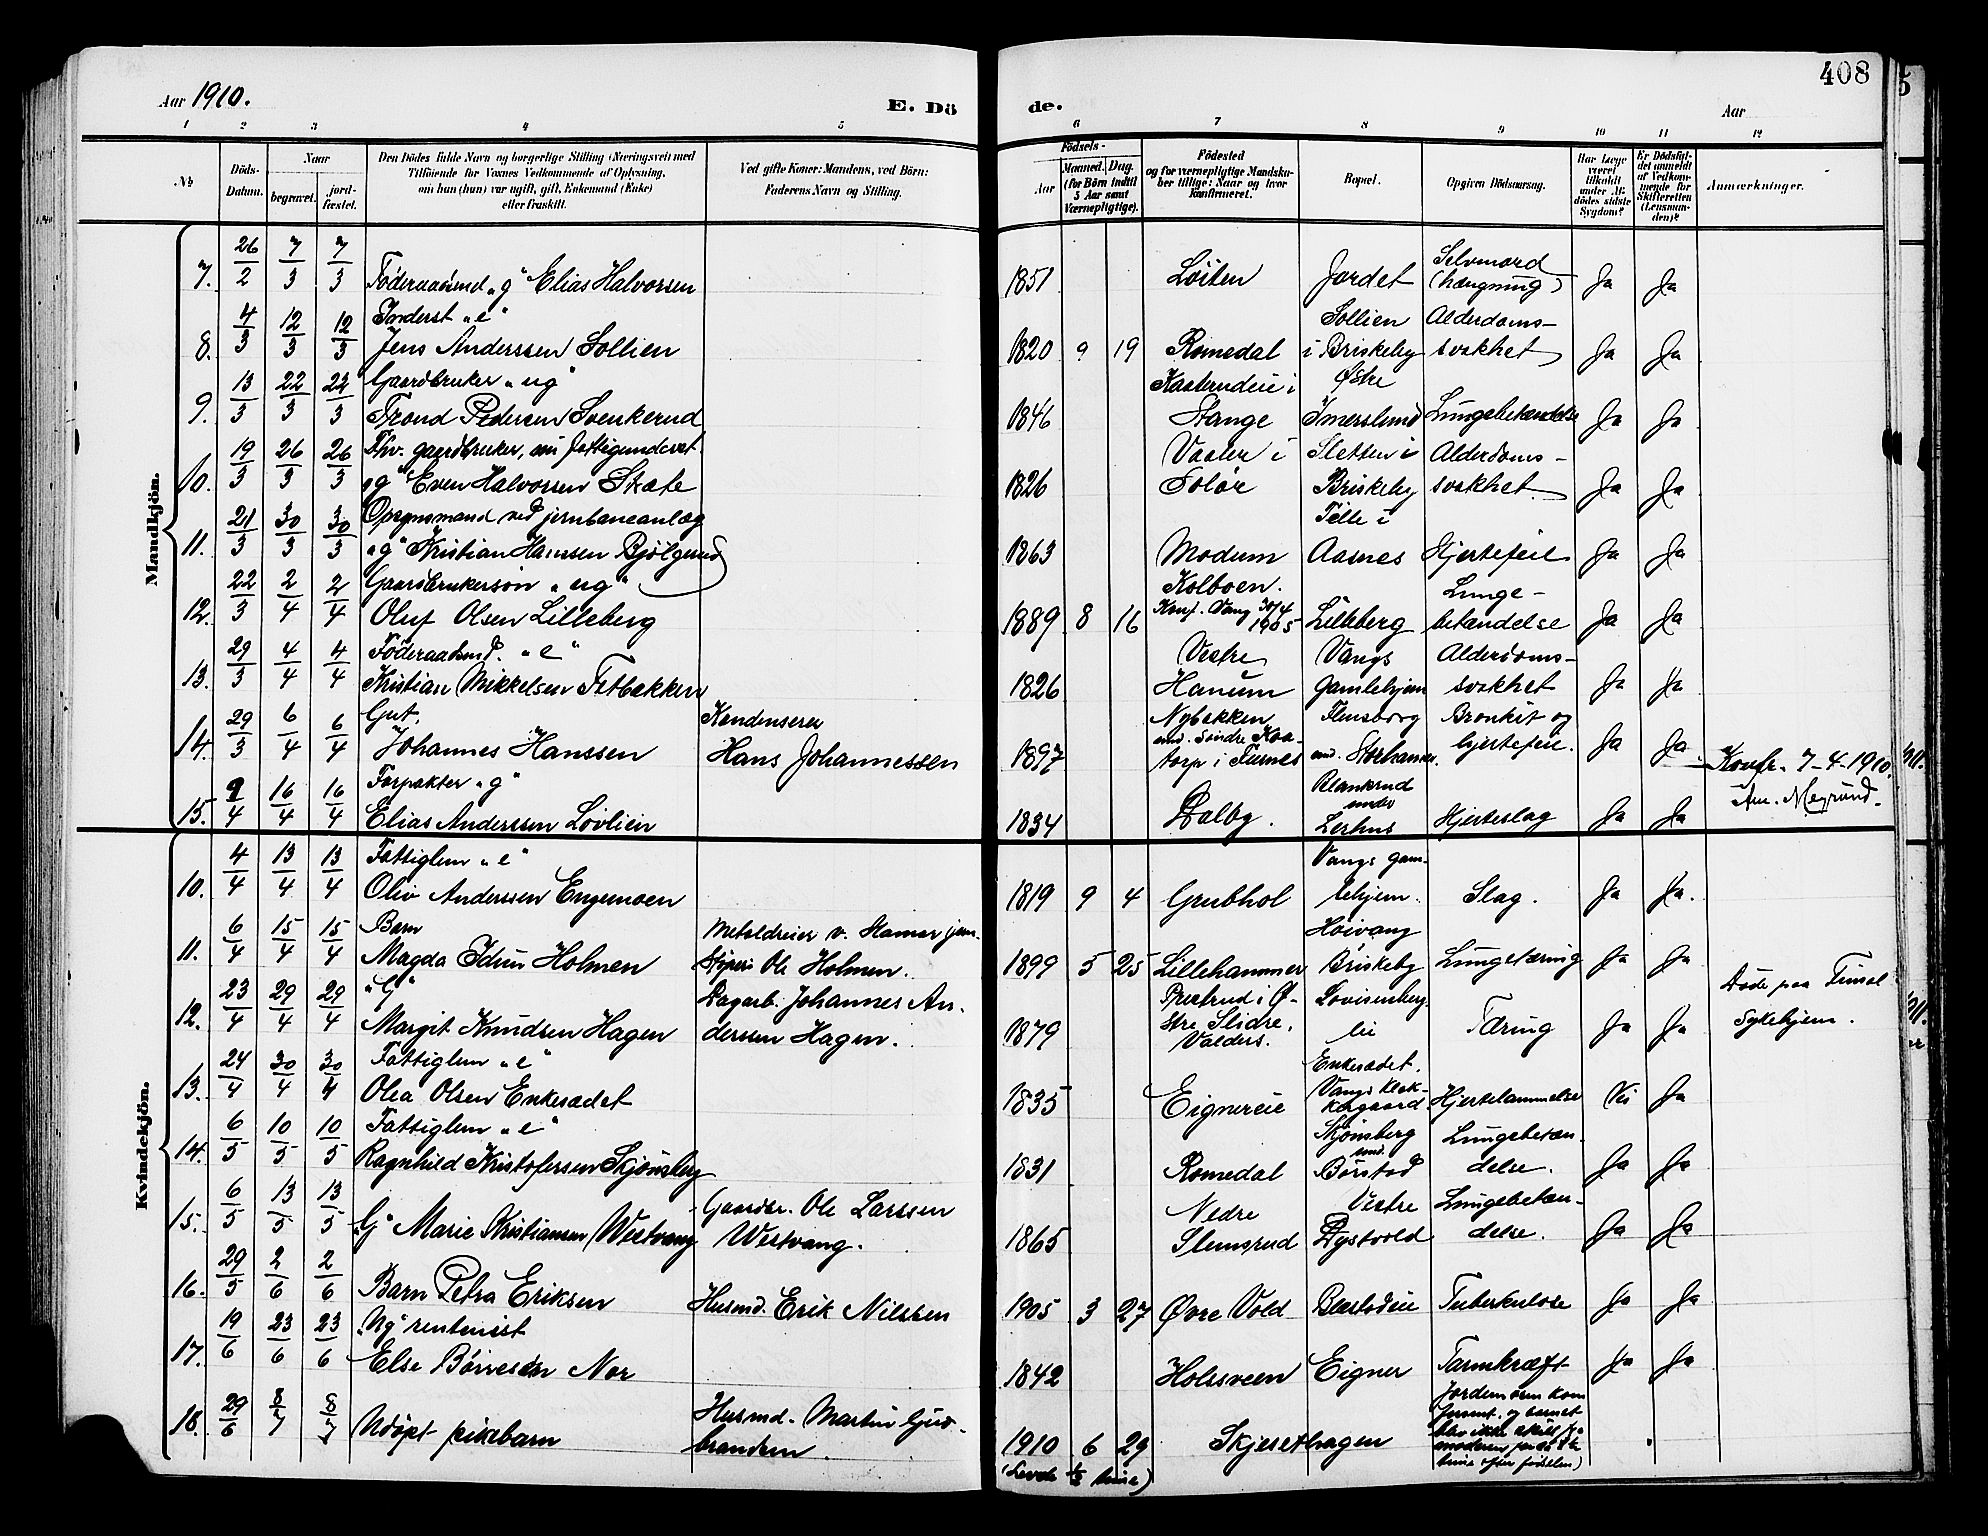 408
Aar 1910.
E. Dö
de.
Aar
1 2 3 4 5
6 7 8 9 10 11 12
No
Döds-Datum.
Naar
begravet.
jord-fæstet.
Den Dödes fulde Navn og borgerlige Stilling (Næringsvei) med
Tilföiende for Voxnes Vedkommende af Oplysning,
om han (hun) var ugift, gift, Enkemand (Enke)
eller fraskilt.
Ved gifte Koner: Mandens, ved Börn:
Faderens Navn og Stilling.
Födsels-
Aar
Maaned. Dag.
(for Börn indtil
5 Aar samt
Værnepligtige).
Födested
og for værnepligtige Mandsku-
ber tillige: Naar og hvor
konfirmeret.
Bopæl.
Opgiven Dödsaarsag.
Har Læge
været
tilkaldt
under Af-
dödes sidste
Sygdom?
Er Dödsfal-
det anmeldt
af Vedkom-
mende for
Skifteretten
(Lensman-
den)?
Anmærkninger.
Mandkjön.
7. 26/2 7/3 7/3 Föderaadsmd „g“ Elias Halvorsen 1851 Löiten Jordet Selvmord (hængning) Ja Ja
8. 4/3 12/3 12/3 Inderst „e“ Jens Anderssen Sollien 1820 9 19 Romedal Sollien i Briskeby Alderdoms-svakhet Ja Ja
9. 13/3 22/3 22/3 Gaardbruker „ug“ Trond Pedersen Svenkerud 1846 Kaaterudeie i Stange Østre Imerslund Lungebetændelse Ja Ja
10. 19/3 26/3 26/3 Fhv. gaardbruker, nu fattigunderst. „g“ Even Halvorsen Skate 1826 Vaaler i Solör Sletten i Briskeby Alderdoms-svakhet Ja Ja
11. 21/3 30/3 30/3 Opsynsmand ved jernbaneanlæg „g“ Kristian Hansen Bjölgerud 1863 Modum Telle i Aasnes Hjertefeil Ja Ja
12. 22/3 2/4 2/4 Gaardbrukersön „ug“ Oluf Olsen Lilleberg 1889 8 16 Kolboen. Konf. Vang 30/4 1905 Lilleberg Lunge-betændelse Ja Ja
13. 29/3 4/4 4/4 Föderaadsmd. „e“ Kristian Mikkelsen Tatbækken 1826 Vestre Hanum Vangs Gamlehjem Alderdoms-svakhet Ja Ja
14. 29/3 6/4 6/4 Gut. Johannes Hanssen Kondenserer Hans Johannessen 1897 Nybækken und. Söndre Kaa-torp i Furnes Flensborg und. Storhamar. Bronkit og hjertefeil. Ja Ja Konfr. 7-4-1910.
15. 9/4 16/4 16/4 Forpakter „g“ Elias Anderssen Lövlien 1834 Dalby. Blankerud under Lerhus Hjerteslag Ja Ja
Kvindekjön.
10. 4/4 13/4 13/4 Fattiglem „e“ Oliv Anderssen Engemoen 1819 9 4 Grubhol Vangs gam-lehjem. Slag. Ja Ja.
11. 6/4 15/4 15/4 Barn Magda Idun Holmen Metaldreier v. Hamar jern-støperi Ole Holmen. 1899 5 25 Lillehammer Höivang Briskeby Lungetæring Ja Ja
12. 23/4 29/4 29/4 „G“ Margit Knudsen Hagen Dagarb. Johannes An-derssen Hagen. 1879 Prestrud i Ø-stre Slidre, Valders. Lovisenberg-lie Tæring Ja Ja Döde paa Furnes Sykehjem.
13. 24/4 30/4 30/4 Fattiglem „e“ Olea Olsen Enkesædet 1835 Eignereie Enkesædet. Vangs Klok-kergaard Hjertelammelse Nei Ja
14. 6/5 10/5 10/5 Fattiglem „e“ Ragnhild Kristofersen Skjönsberg 1831 Romedal Skjönsberg und. Börstad Lungebetæn-delse. Ja Ja
15. 6/5 13/5 13/5 „G“ Marie Kristiansen Westvang Gaardbr. Ole Larssen Westvang. 1865 Nedre Slemsrud Vestre Dystvold Lungebetæn-delse. Ja Ja
16. 29/5 2/6 2/6 Barn Petra Eriksen Husmd. Erik Nilssen 1905 3 27 Övre Vold Blestadeie Tuberkulose Ja Ja
17. 19/6 23/6 23/6 „Ug“ rentenist Else Börresen Nor 1842 Holssveen Eigner Tarmkræft Ja Ja
18. 29/6 8/7 8/7 Udöpt pikebarn Husmd. Martin Gud-brandsen. 1910 6 29 Skjesethagen Jordemoren kom forsent. og barnet blev ikke skilt fra moderen
(Levde 1/2 time)